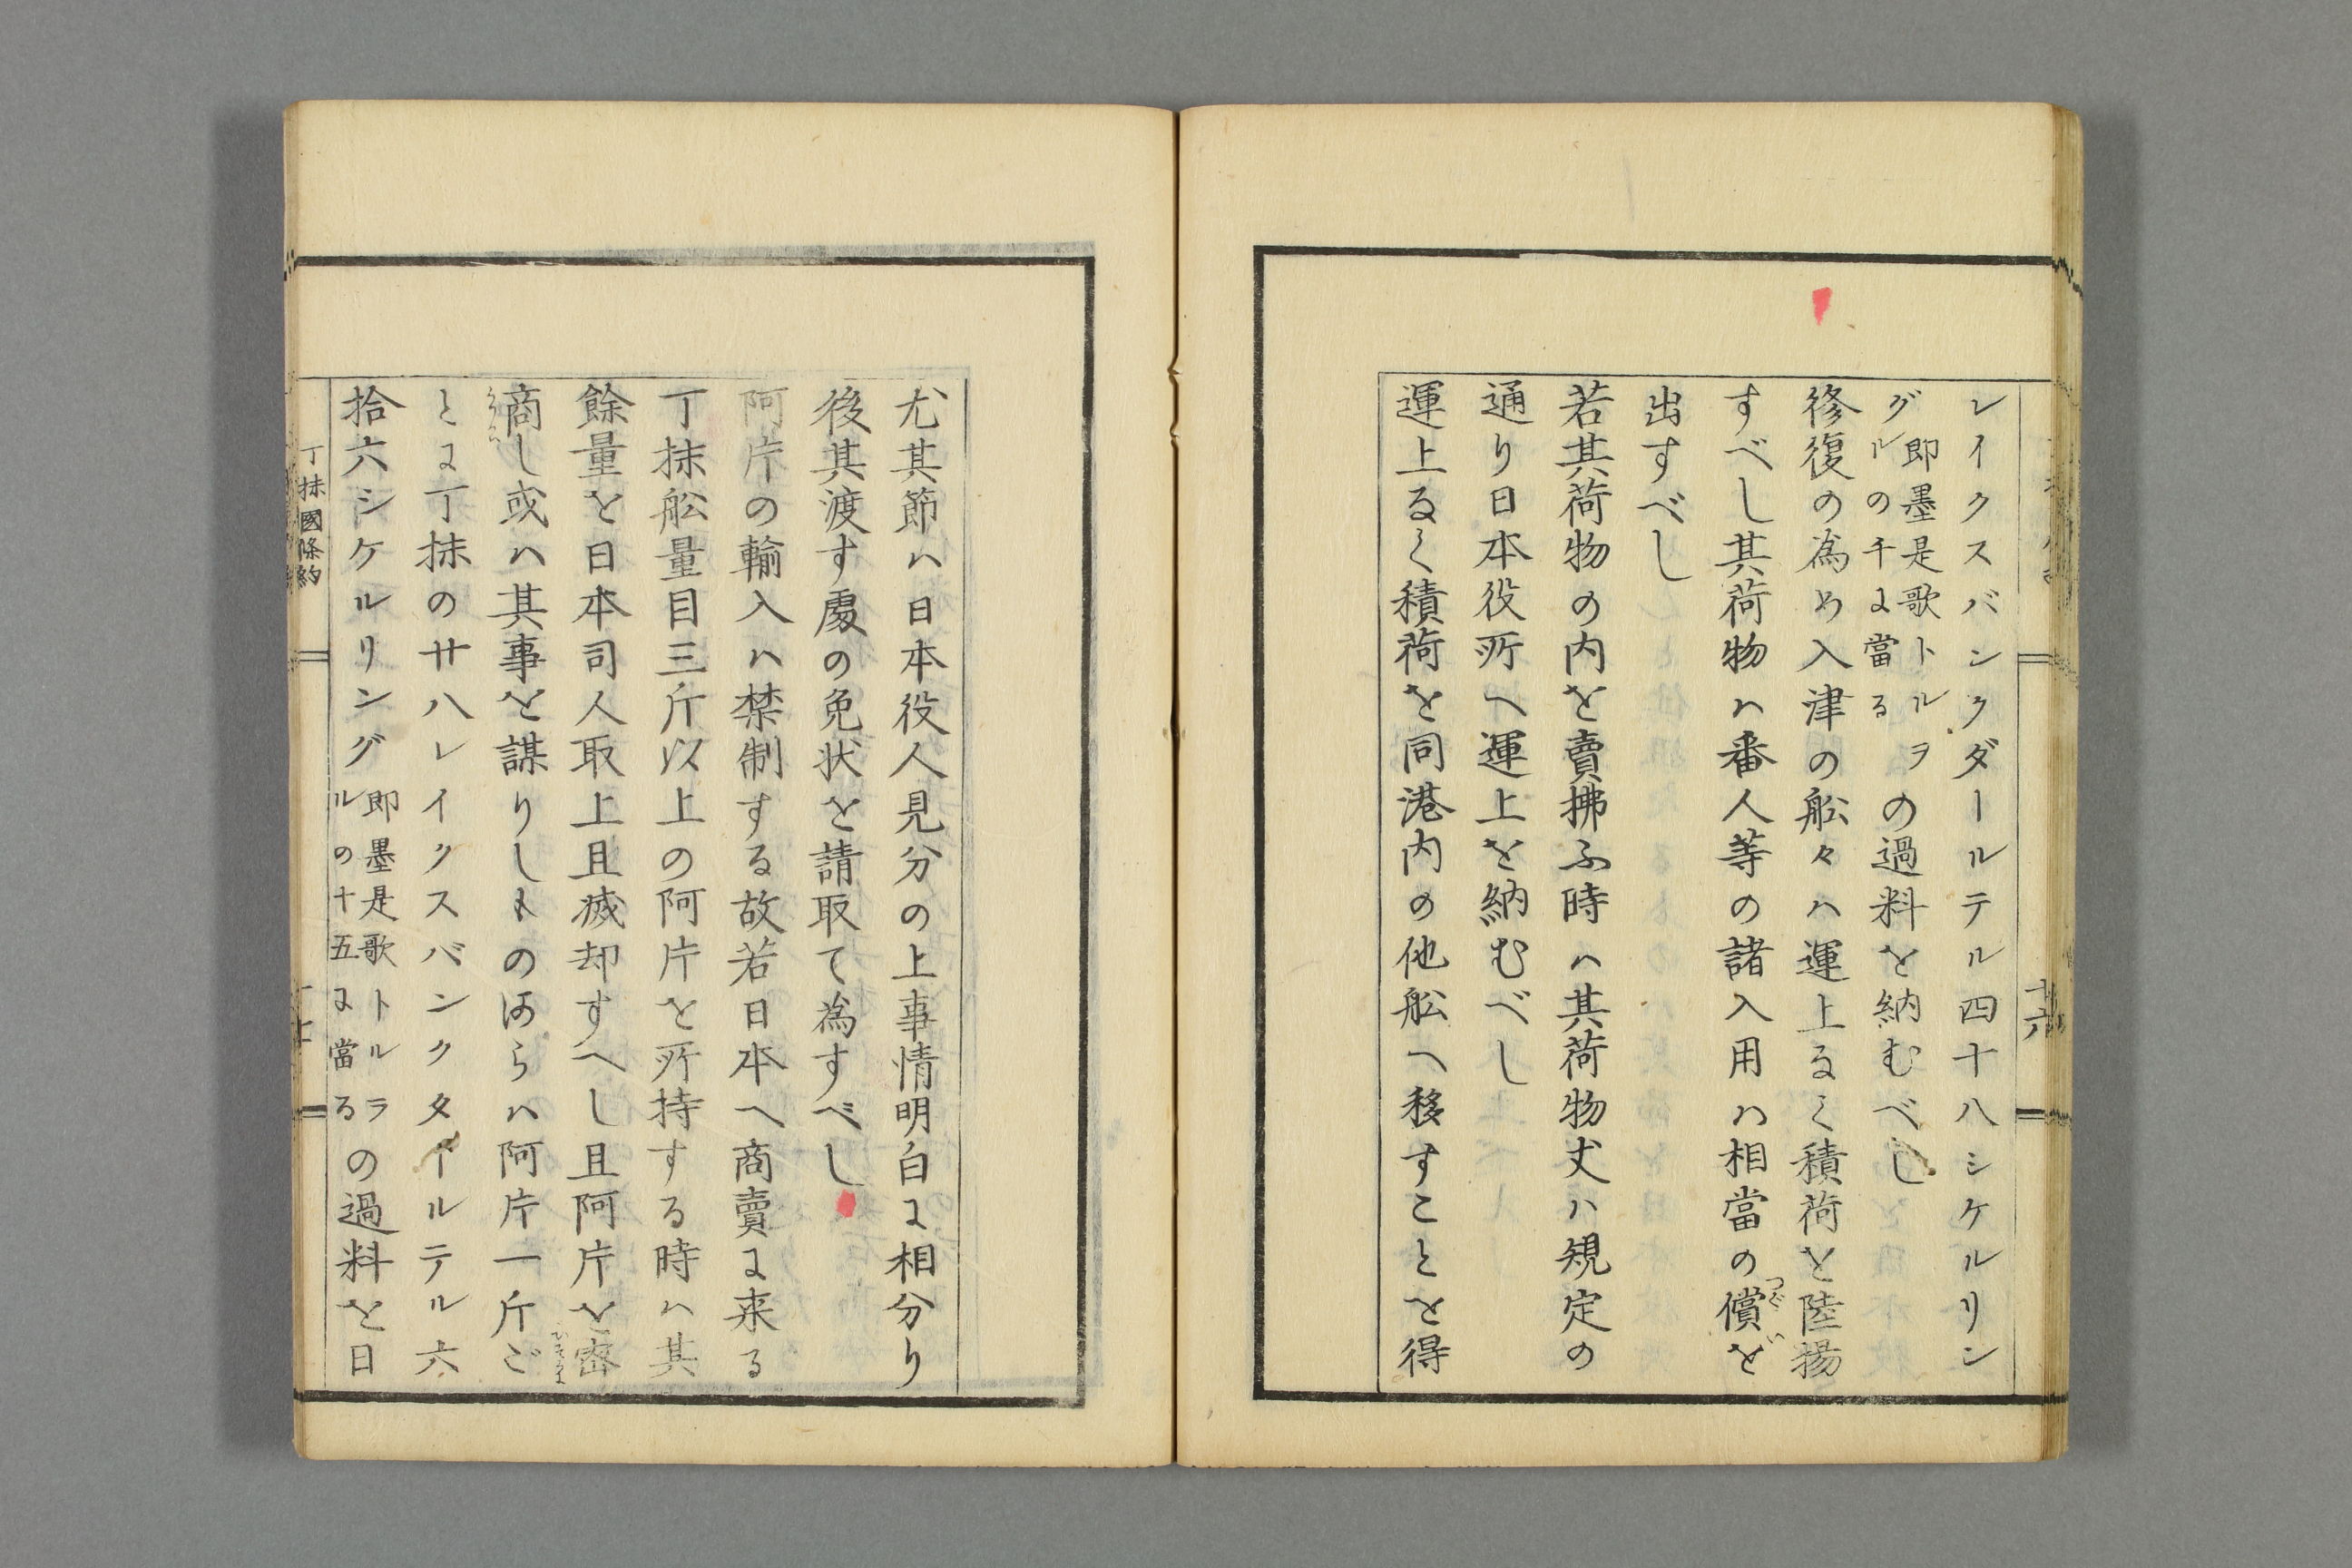 レイクスバンクダールテル四十八シケルリン
グ即墨是歌トルラルの千に當るの過料を納むべし
修復の為め入津の舩々ハ運上なく積荷を陸揚
すべし其荷物ハ番人等の諸入用ハ相當の償を
出すべし
若其荷物の内を賣拂ふ時ハ其荷物丈ハ規定の
通り日本役所へ運上を納むべし
運上なく積荷を同港内の他舩へ移すことを得
十六
尤其節ハ日本役人見分の上事情明白に相分り
後其渡す處の免状を請取て為すべし
阿片の輸入ハ禁制する故若日本へ商賣に来る
丁抹舩量目三斤以上の阿片を所持する時ハ其
餘量を日本司人取上且滅却すへし且阿片を密
商し或ハ其事を謀りしものあらハ阿片一斤ご
とに丁抹の廿八レイクスバンクタールテル六
拾六シケルリング即墨是歌トルラルの十五に當るの過料を日
丁抹國條約